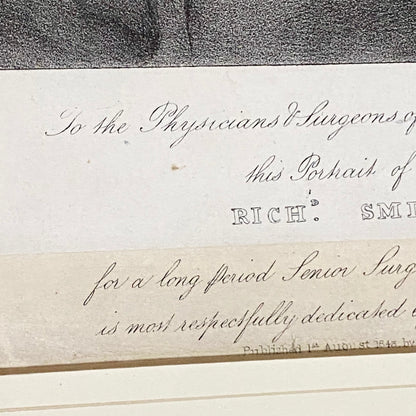 To the Physicians & Surgeons of
this Portrait of
RICHD. SMI
for a long Period Senior Surg
is most respectfully dedicated
Published 1st August 1843, by